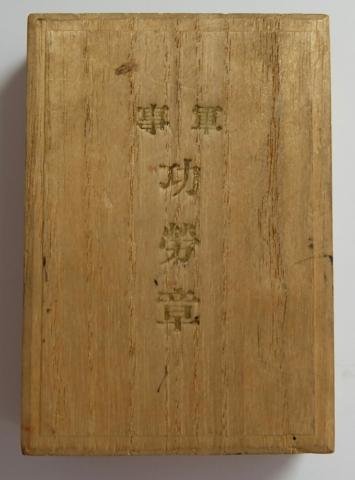 軍事
功勞章